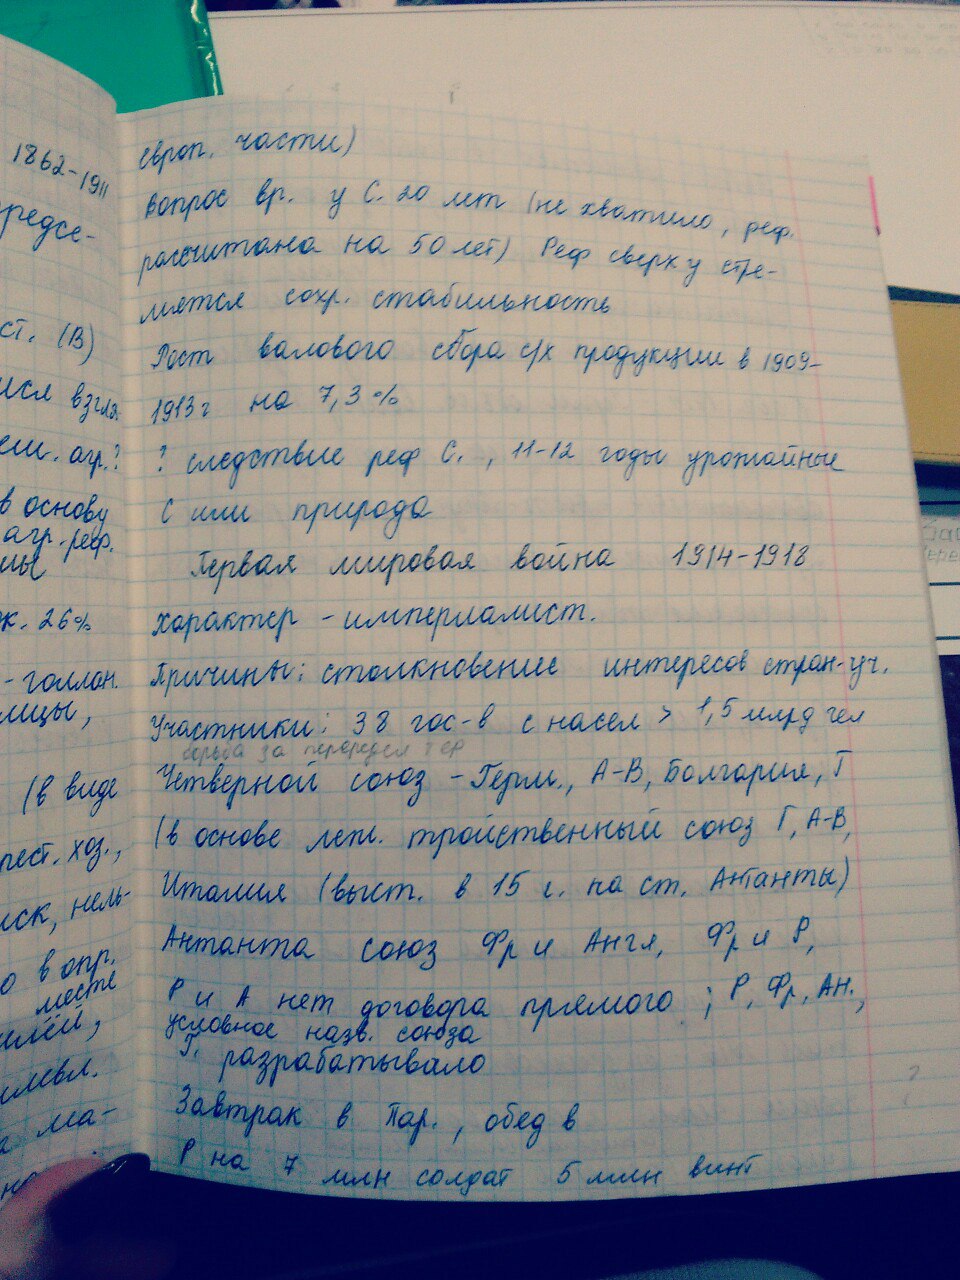 1862-1911
редсе-
ст. (В)
агр.?
в основу
агр. реф.
26%
- голлан.
(в виде
хоз.,
нель-
месте
ма-
европ. части)
Вопрос вр. у С. 20 лет (не хватило, реф.
рассчитана на 50 лет) Реф сверху стре-
мятся сохр. стабильность
Рост валового сбора с/х продукции в 1909-
1913 г на 7,3 %
? следствие реф С., 11-12 годы урожайные
С или природа
Первая мировая война 1914-1918
Характер - империалист.
Причины: столкновение интересов стран-уч.
Участники: 38 гос-в с насел > 1,5 млрд чел
борьба за передел тер
Четверной союз - Герм., А-В, Болгария, Т
(в основе леж. тройственный союз Г, А-В,
Италия (выст. в 15 г. на ст. Антанты)
Антанта союз Фр и Англ, Фр и Р,
Р и А нет договора прямого; Р, Фр, Ан.,
условное назв. союза
Г. разрабатывало
Завтрак в Пар., обед в
Р на 7 млн солдат 5 млн винт